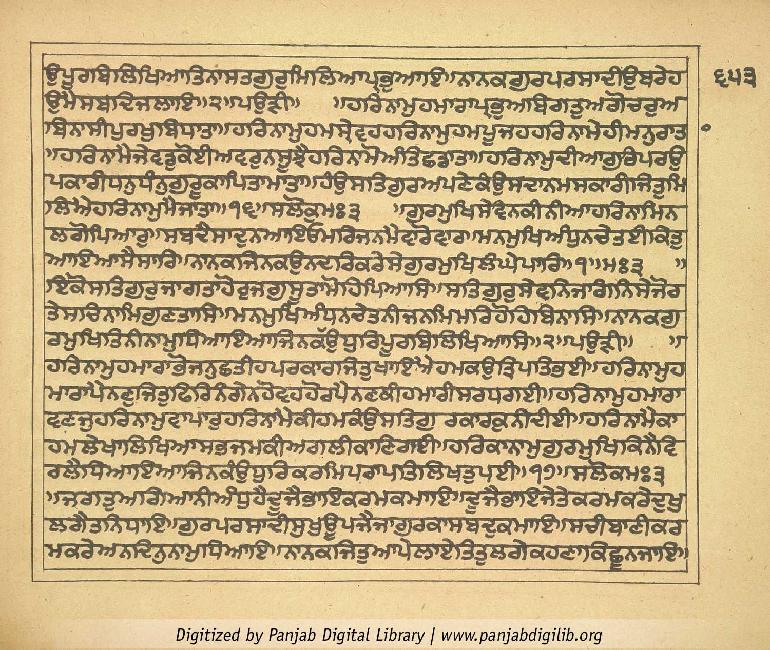 ਉਪੂਰਬਿਲਿਖਿਆਤਿਨਾਸਤਗੁਰੁਮਿਲਿਆਪ੍ਰਭੁਆਇ॥ਨਾਨਕਗੁਰਪਰਸਾਦੀਉਬਰੇਹ
੬੫੩
ਉਮੈਸਬਦਿਜਲਾਇ॥੨॥ਪਉੜੀ॥ ॥ਹਰਿਨਾਮੁਹਮਾਰਾਪ੍ਰਭੁਅਬਿਗਤੁਅਗੋਚਰੁਅ
ਬਿਨਾਸੀਪੁਰਖੁਬਿਧਾਤਾ॥ਹਰਿਨਾਮੁਹਮਸ੍ਰੇਵਹਹਰਿਨਾਮੁਹਮਪੂਜਹਹਰਿਨਾਮੇਹੀਮਨੁਰਾਤਾ
॥ਹਰਿਨਾਮੈਜੇਵਡੁਕੋਈਅਵਰੁਨਸੂਝੈਹਰਿਨਾਮੋਅੰਤਿਛਡਾਤਾ॥ਹਰਿਨਾਮੁਦੀਆਗੁਰਿਪਰਉ
ਪਕਾਰੀਧਨੁਧੰਨੁਗੁਰੂਕਾਪਿਤਾਮਾਤਾ॥ਹੰਉਸਤਿਗੁਰਅਪਣੇਕੰਉਸਦਾਨਮਸਕਾਰੀਜਿਤੁਮਿ
ਲਿਐਹਰਿਨਾਮੁਮੈਜਾਤਾ॥੧੬॥ਸਲੋਕੁਮਃ੩ ॥ਗੁਰਮੁਖਿਸੇਵਨਕੀਨੀਆਹਰਿਨਾਮਿਨ
ਲਗੋਪਿਆਰੁ॥ਸਬਦੈਸਾਦੁਨਆਇਓਮਰਿਜਨਮੈਵਾਰੋਵਾਰ॥ਮਨਮੁਖਿਅੰਧੁਨਚੇਤਈਕਿਤੁ
ਆਇਆਸੈਸਾਰਿ॥ਨਾਨਕਜਿਨਕਉਨਦਰਿਕਰੇਸੇਗੁਰਮੁਖਿਲੰਘੇਪਾਰਿ॥੧॥ਮਃ੩ ॥
ਇਕੋਸਤਿਗੁਰੁਜਾਗਤਾਹੋਰੁਜਗੁਸੂਤਾਮੋਹਿਪਿਆਸਿ॥ਸਤਿਗੁਰੁਸੇਵਨਿਜਾਗੰਨਿਸੇਜੋਰ
ਤੇਸਚਿਨਾਮਿਗੁਣਤਾਸਿ॥ਮਨਮੁਖਿਅੰਧਨਚੇਤਨੀਜਨਮਿਮਰਿਹੋਹਿਬਿਨਾਸਿ॥ਨਾਨਕਗੁ
ਰਮੁਖਿਤਿਨੀਨਾਮੁਧਿਆਇਆਜਿਨਕੰਉਧੁਰਿਪੂਰਬਿਲਿਖਿਆਸਿ॥੨॥ਪਉੜੀ॥ ॥
ਹਰਿਨਾਮੁਹਮਾਰਾਭੋਜਨੁਛਤੀਹਪਰਕਾਰਜਿਤੁਖਾਇਐਹਮਕਉਤ੍ਰਿਪਤਿਭਈ॥ਹਰਿਨਾਮੁਹ
ਮਾਰਾਪੈਨਣੁਜਿਤੁਫਿਰਿਨੰਗੇਨਹੋਵਹਹੋਰਪੈਨਣਕੀਹਮਾਰੀਸਰਧਗਈ॥ਹਰਿਨਾਮੁਹਮਾਰਾ
ਵਣਜੁਹਰਿਨਾਮੁਵਾਪਾਰੁਹਰਿਨਾਮੈਕੀਹਮਕੰਉਸਤਿਗੁ ਰਕਾਰਕੁਨੀਦੀਈ॥ਹਰਿਨਾਮੈਕਾ
ਹਮਲੇਖਾਲਿਖਿਆਸਭਜਮਕੀਅਗਲੀਕਾਣਿਗਈ॥ਹਰਿਕਾਨਾਮੁਗੁਰਮੁਖਿਕਿਨੈਵਿ
ਰਲੈਧਿਆਇਆਜਿਨਕੰਉਧੁਰਿਕਰਮਿਪਰਾਪਤਿਲਿਖਤੁਪਈ॥੧੭॥ਸਲੋਕਮਃ੩
॥ਜਗਤੁਅਗਿਆਨੀਅੰਧੁਹੈਦੂਜੈਭਾਇਕਰਮਕਮਾਇ॥ਦੂਜੈਭਾਇਜੇਤੇਕਰਮਕਰੇਦੁਖੁ
ਲਗੈਤਨਿਧਾਇ॥ਗੁਰਪਰਸਾਦੀਸੁਖੁਊਪਜੈਜਾਗੁਰਕਾਸਬਦੁਕਮਾਇ॥ਸਚੀਬਾਣੀਕਰ
ਮਕਰੇਅਨਦਿਨੁਨਾਮੁਧਿਆਇ॥ਨਾਨਕਜਿਤੁਆਪੇਲਾਏਤਿਤੁਲਗੇਕਹਣਾਕਿਛੂਨਜਾਇ॥
Digitized by Panjab Digital Library | www.panjabdigilib.org